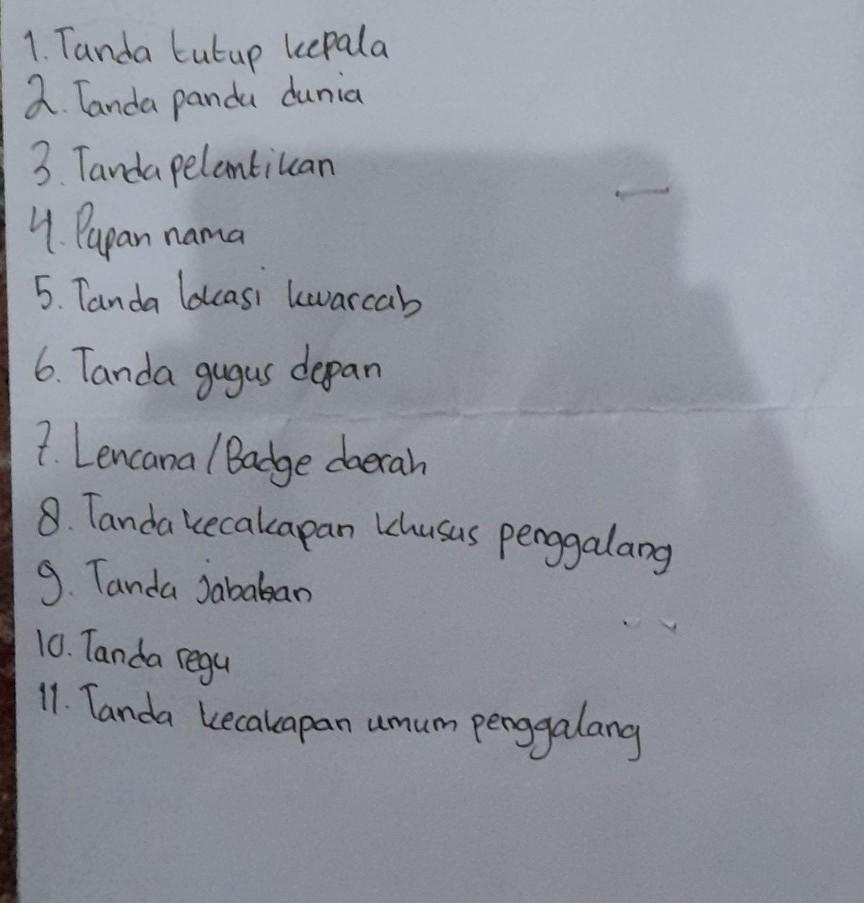 1. Tanda tutup kepala
2. Tanda pandu dunia
3. Tanda pelantikan
4. Papan nama
5. Tanda lokasi kwarcab
6. Tanda gugus depan
7. Lencana/Badge daerah
8. Tanda kecakapan khusus penggalang
9. Tanda jabatan
10. Tanda regu
11. Tanda kecakapan umum penggalang